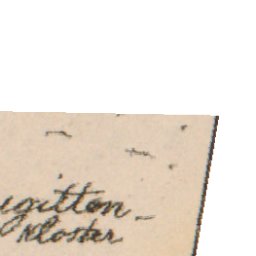 igitten-
Kloster